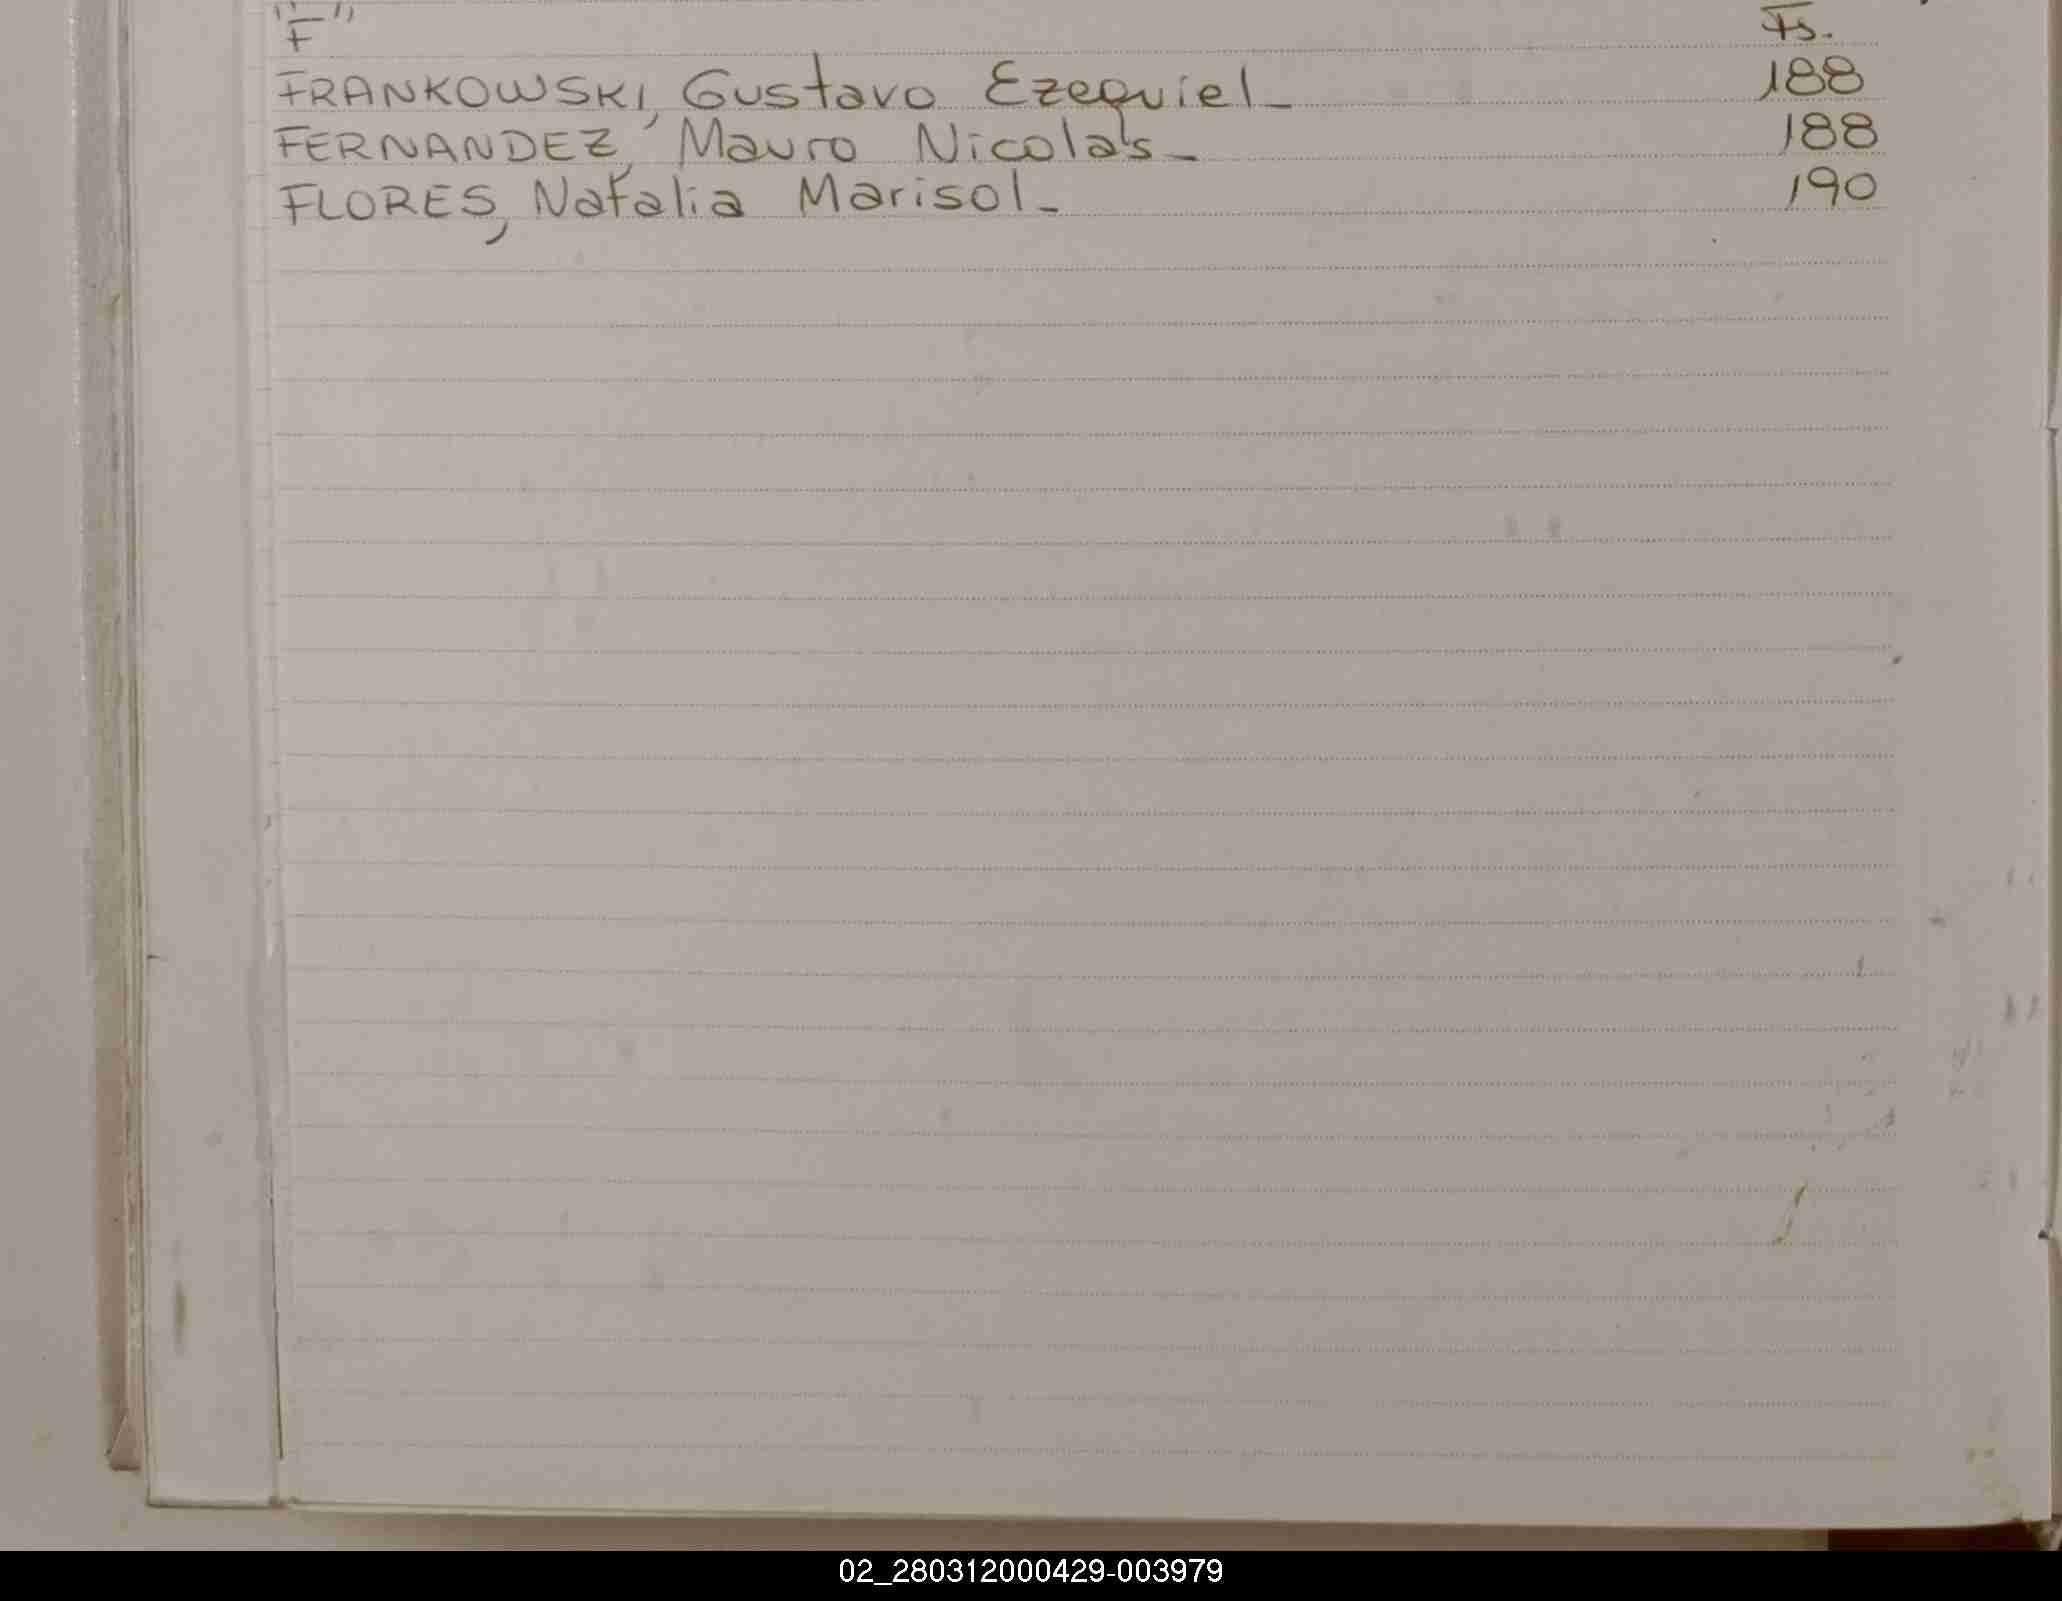 "F" Fs.
FRANKOWSKI, Gustavo Ezequiel_ 188
FERNANDEZ, Mauro Nicolás_ 188
FLORES, Natalia Marisol_ 190
02_280312000429-003979